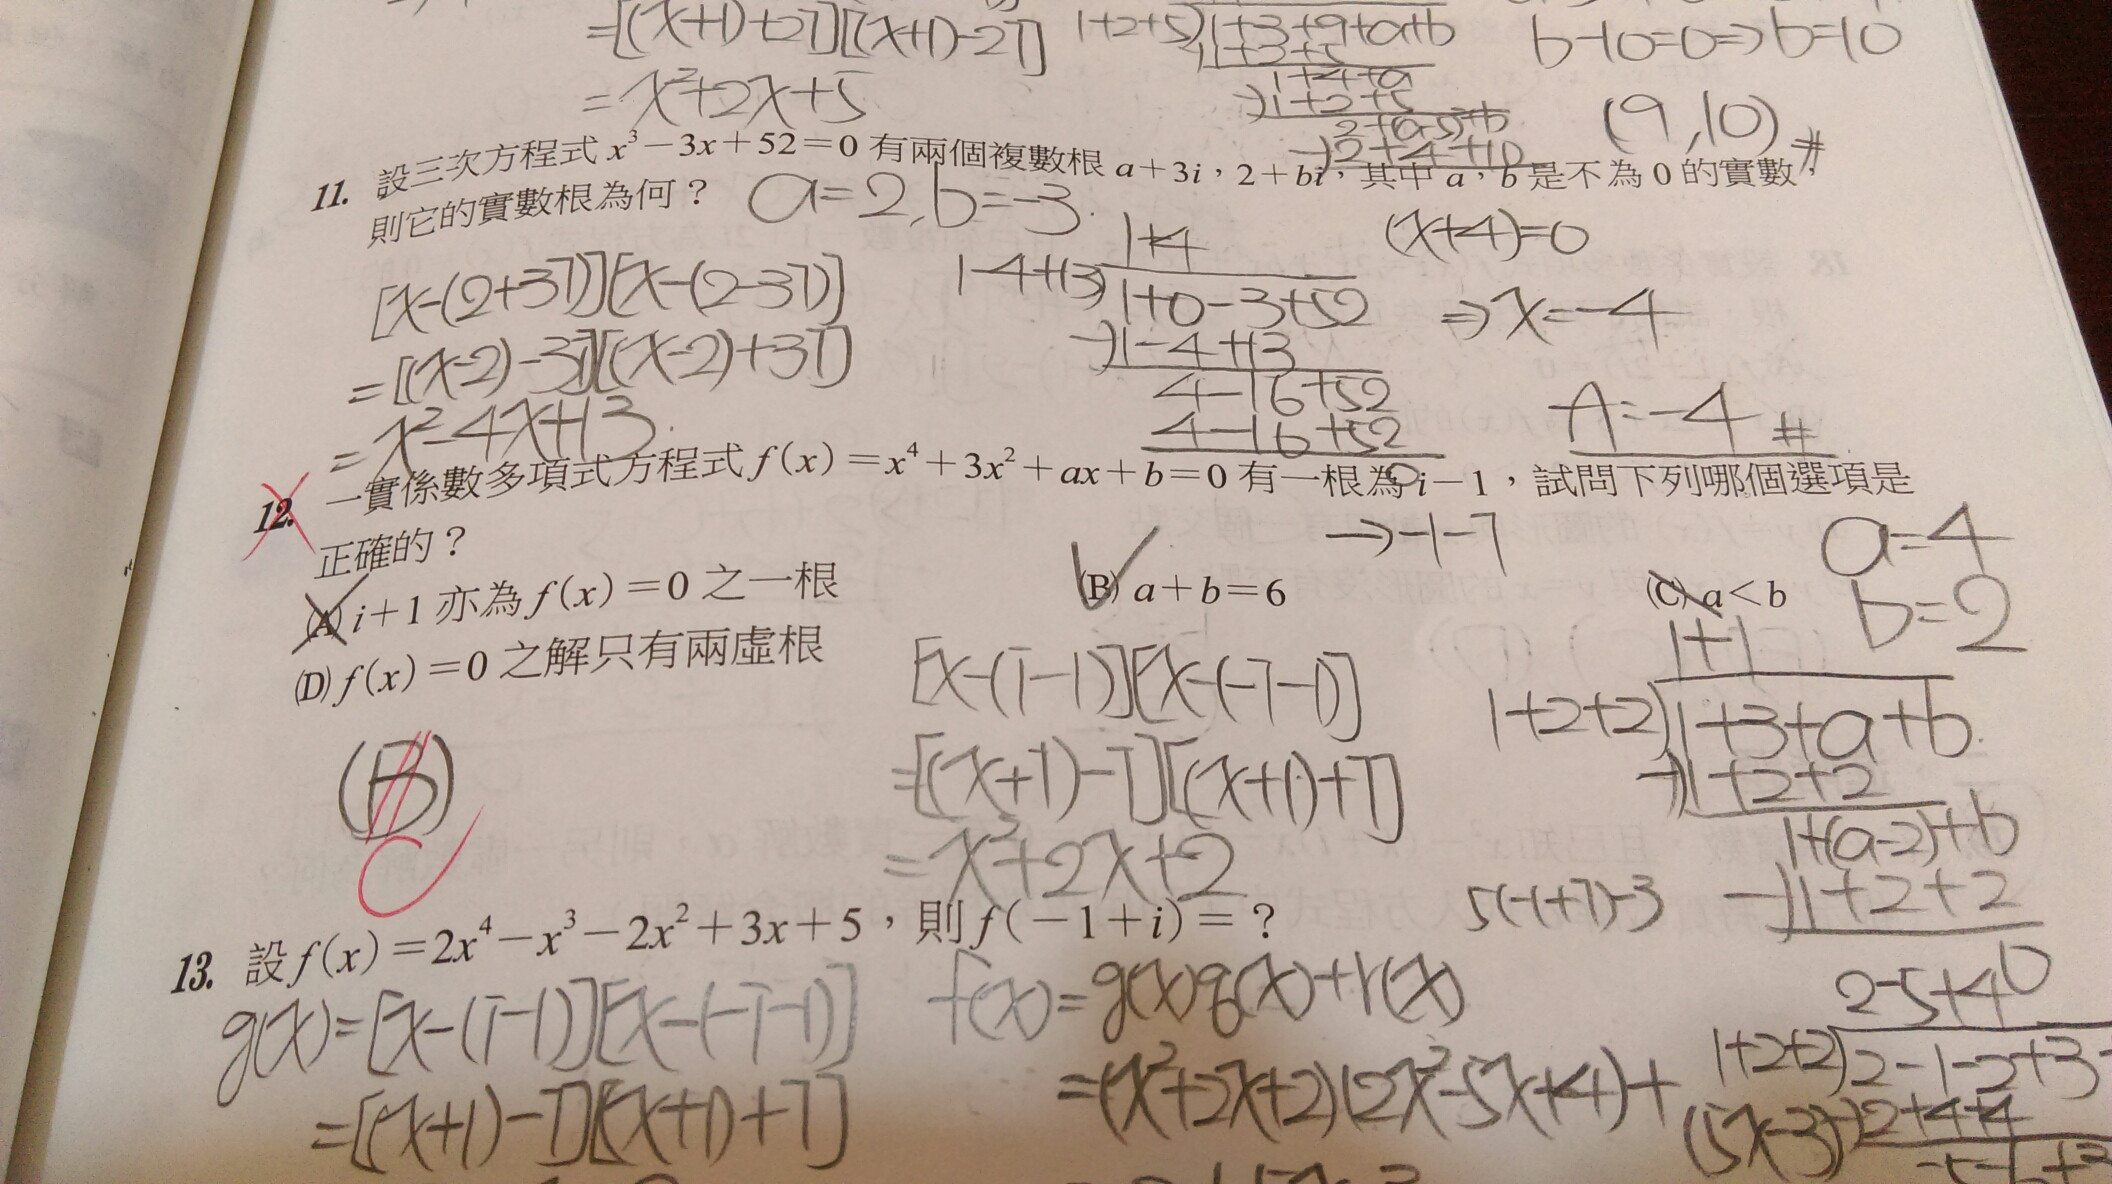 =[(x+1)+2i][(x+1)-2i]
1+2+5) 1+3+9+a+b
1+3+5
b-10=0⇒b=10
= x²+2x+5
1+4+a
-)1+2+5
2+(a-5)+b
-)2+4+10
(9,10)#
11. 設三次方程式 x³－3x＋52＝0 有兩個複數根 a＋3i，2＋bi，其中 a，b 是不為 0 的實數，
則它的實數根為何？ a=2,b=-3.
[x-(2+3i)][x-(2-3i)]
=[(x-2)-3i][(x-2)+3i]
= x²-4x+13.
1+4
1-4+13) 1+0-3+52
-)1-4+13
4-16+52
4-16+52
0
(x+4)=0
⇒x=-4
A=-4 #
12. 一實係數多項式方程式 f(x)＝x⁴＋3x²＋ax＋b＝0 有一根為 i－1，試問下列哪個選項是
正確的？
→-1-i
a=4
b=2
(A) i＋1 亦為 f(x)＝0 之一根 (B) a＋b＝6 (C) a＜b
(D) f(x)＝0 之解只有兩虛根
(B)
[x-(i-1)][x-(-i-1)]
=[(x+1)-i][(x+1)+i]
= x²+2x+2
1+1
1+2+2) 1+3+a+b
-)1+2+2
1+(a-2)+b
-)1+2+2
0
5(-1+i)-3
13. 設 f(x)＝2x⁴－x³－2x²＋3x＋5，則 f(－1＋i)＝？
g(x)=[x-(i-1)][x-(-i-1)]
=[(x+1)-i][(x+1)+i]
f(x)=g(x)q(x)+r(x)
=(x²+2x+2)(2x²-5x+4)+
(5x-3)
2-5+4
1+2+2) 2-1-2+3
-)2+4+4